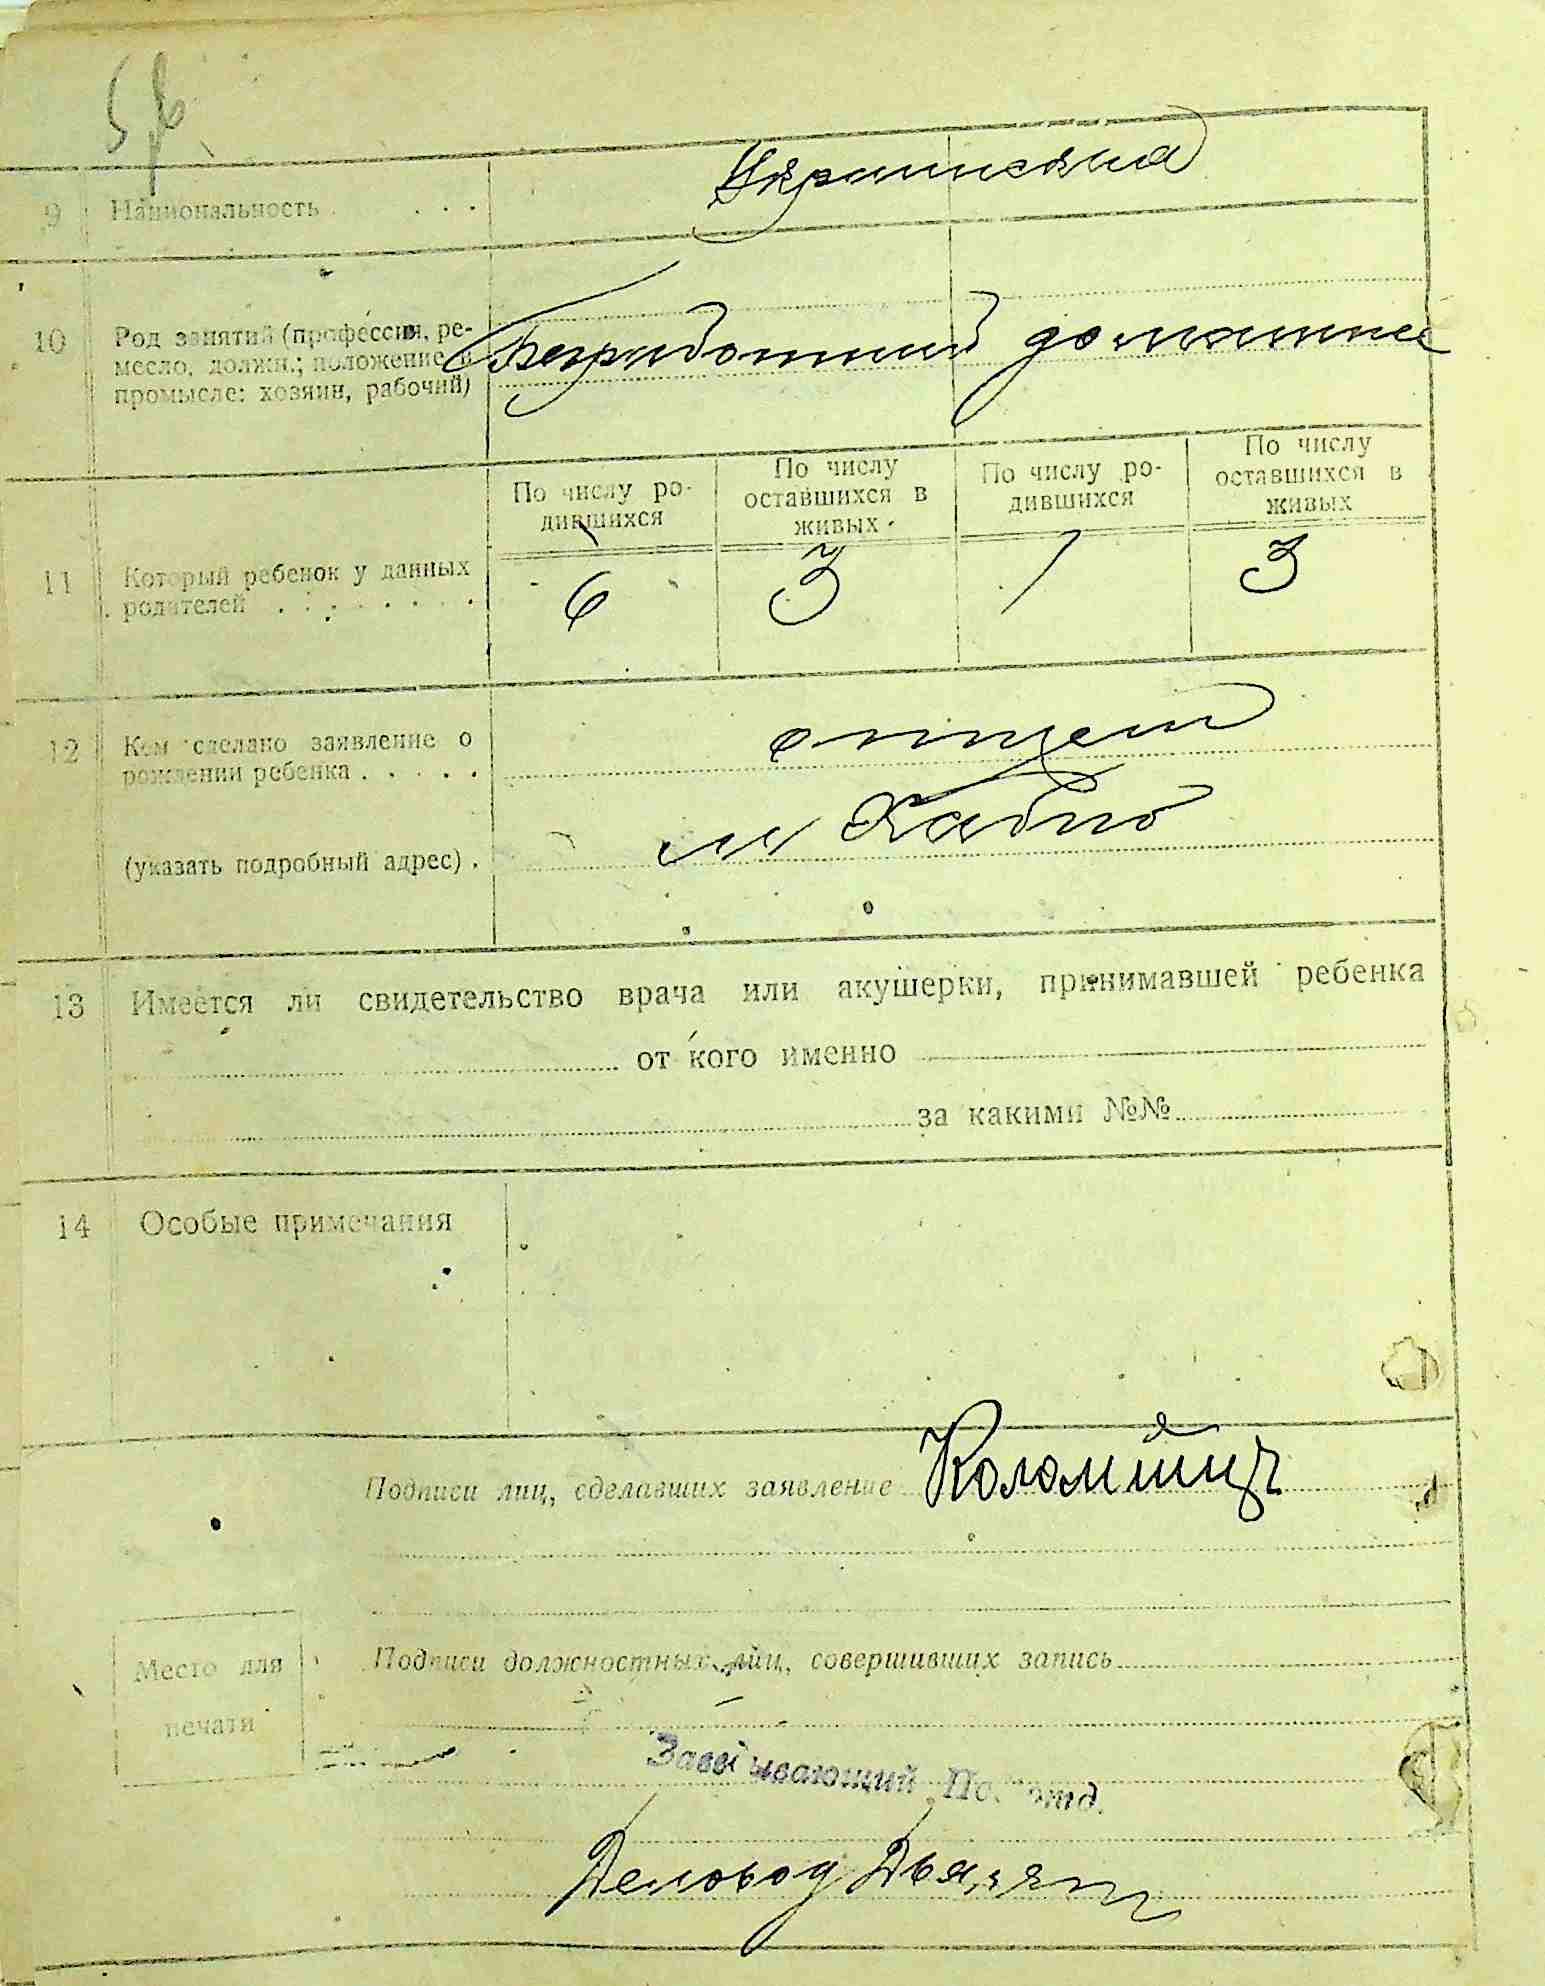 9 Национальность . . . . Украинская
10 Род занятий (профессия, ре-
месло, должн.; положение в
промысле: хозяин, рабочий)
Безработный домашние
По числу ро-
дившихся
По числу
оставшихся в
живых
По числу ро-
дившихся
По числу
оставшихся в
живых
11 Который ребенок у данных
родителей . . . . . . .
6 3 / 3
12 Кем сделано заявление о
рождении ребенка . . . . .
отцем
(указать подробный адрес) .
м
13 Имеется ли свидетельство врача или акушерки, принимавшей ребенка
от кого именно
за какими №№
14 Особые примечания
Подписи лиц, сделавших заявление Коломіиць
Место для
печати
Подписи должностных лиц, совершивших запись
Заведывающий Под отд.
Деловод